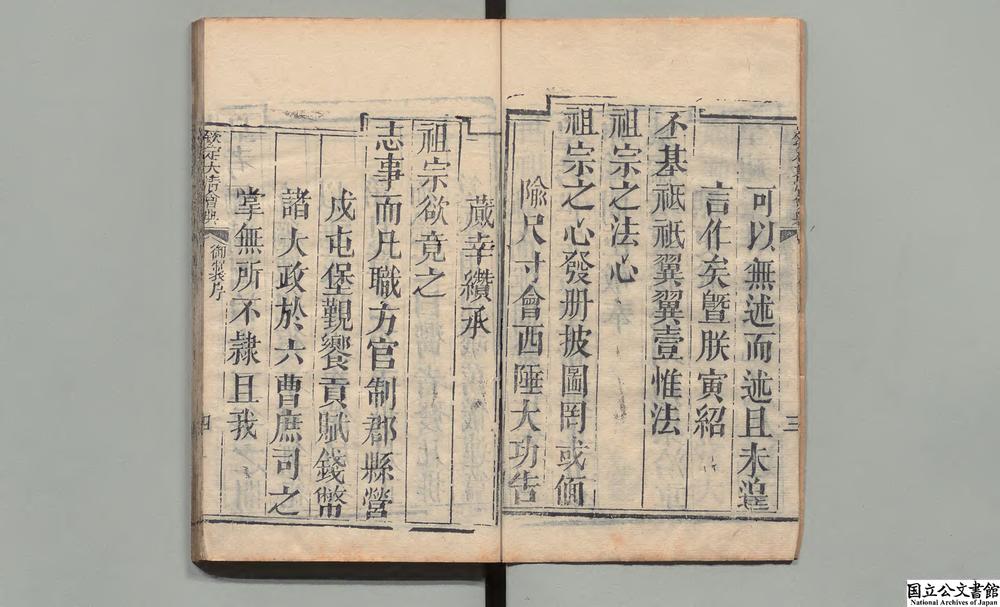 三
可以無述而述且未遑
言作矣曁朕寅紹
丕基祗祗翼翼壹惟法
祖宗之法心
祖宗之心發册披圖罔或偭
隃尺寸會西陲大功告
蕆幸纘承
祖宗欲竟之
志事而凡職方官制郡縣營
戍屯堡覲饗貢賦錢幣
諸大政於六曹庶司之
掌無所不隸且我
欽定大清會典
御製序
四
国立公文書館
National Archives of Japan